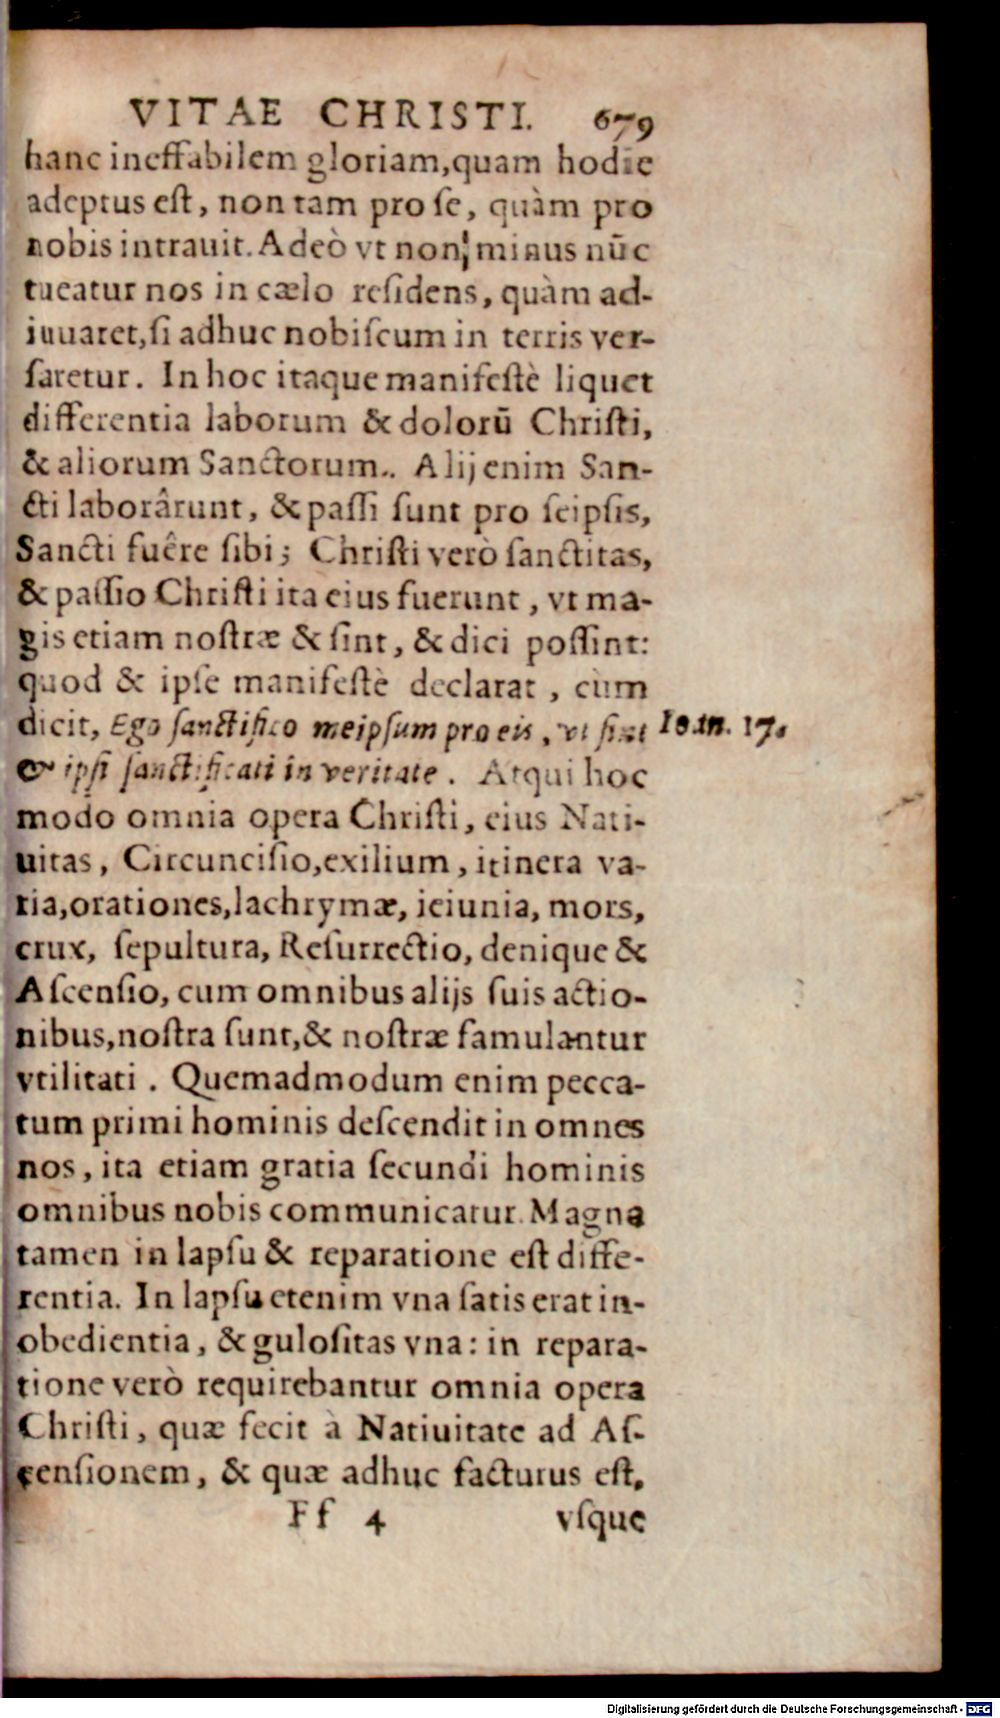 VITAE CHRISTI. 679
hanc ineffabilem gloriam,quam hodie
adeptus eſt, non tam pro ſe, quàm pro
nobis intrauit. Adeò vt non minus nūc
tueatur nos in cælo reſidens, quàm ad-
iuuaret,ſi adhuc nobiſcum in terris ver-
ſaretur. In hoc itaque manifeſtè liquet
differentia laborum & dolorū Chriſti,
& aliorum Sanctorum.. Alij enim San-
cti laborârunt, & paſſi ſunt pro ſeipſis,
Sancti fuêre ſibi; Chriſti verò ſanctitas,
& paſſio Chriſti ita eius fuerunt, vt ma-
gis etiam noſtræ & ſint, & dici poſſint:
quod & ipſe manifeſtè declarat, cùm
dicit, Ego ſanctifico meipſum pro eis, vt ſint Ioan. 17.
& ipſi ſanctificati in veritate. Atqui hoc
modo omnia opera Chriſti, eius Nati-
uitas, Circunciſio,exilium, itinera va-
ria,orationes,lachrymæ, ieiunia, mors,
crux, ſepultura, Reſurrectio, denique &
Aſcenſio, cum omnibus alijs ſuis actio-
nibus,noſtra ſunt,& noſtræ famulantur
vtilitati. Quemadmodum enim pecca-
tum primi hominis deſcendit in omnes
nos, ita etiam gratia ſecundi hominis
omnibus nobis communicatur. Magna
tamen in lapſu & reparatione eſt diffe-
rentia. In lapſu etenim vna ſatis erat in-
obedientia, & guloſitas vna: in repara-
tione verò requirebantur omnia opera
Chriſti, quæ fecit à Natiuitate ad Aſ-
cenſionem, & quæ adhuc facturus eſt,
Ff 4 vſque
Digitalisierung gefördert durch die Deutsche Forschungsgemeinschaft - DFG